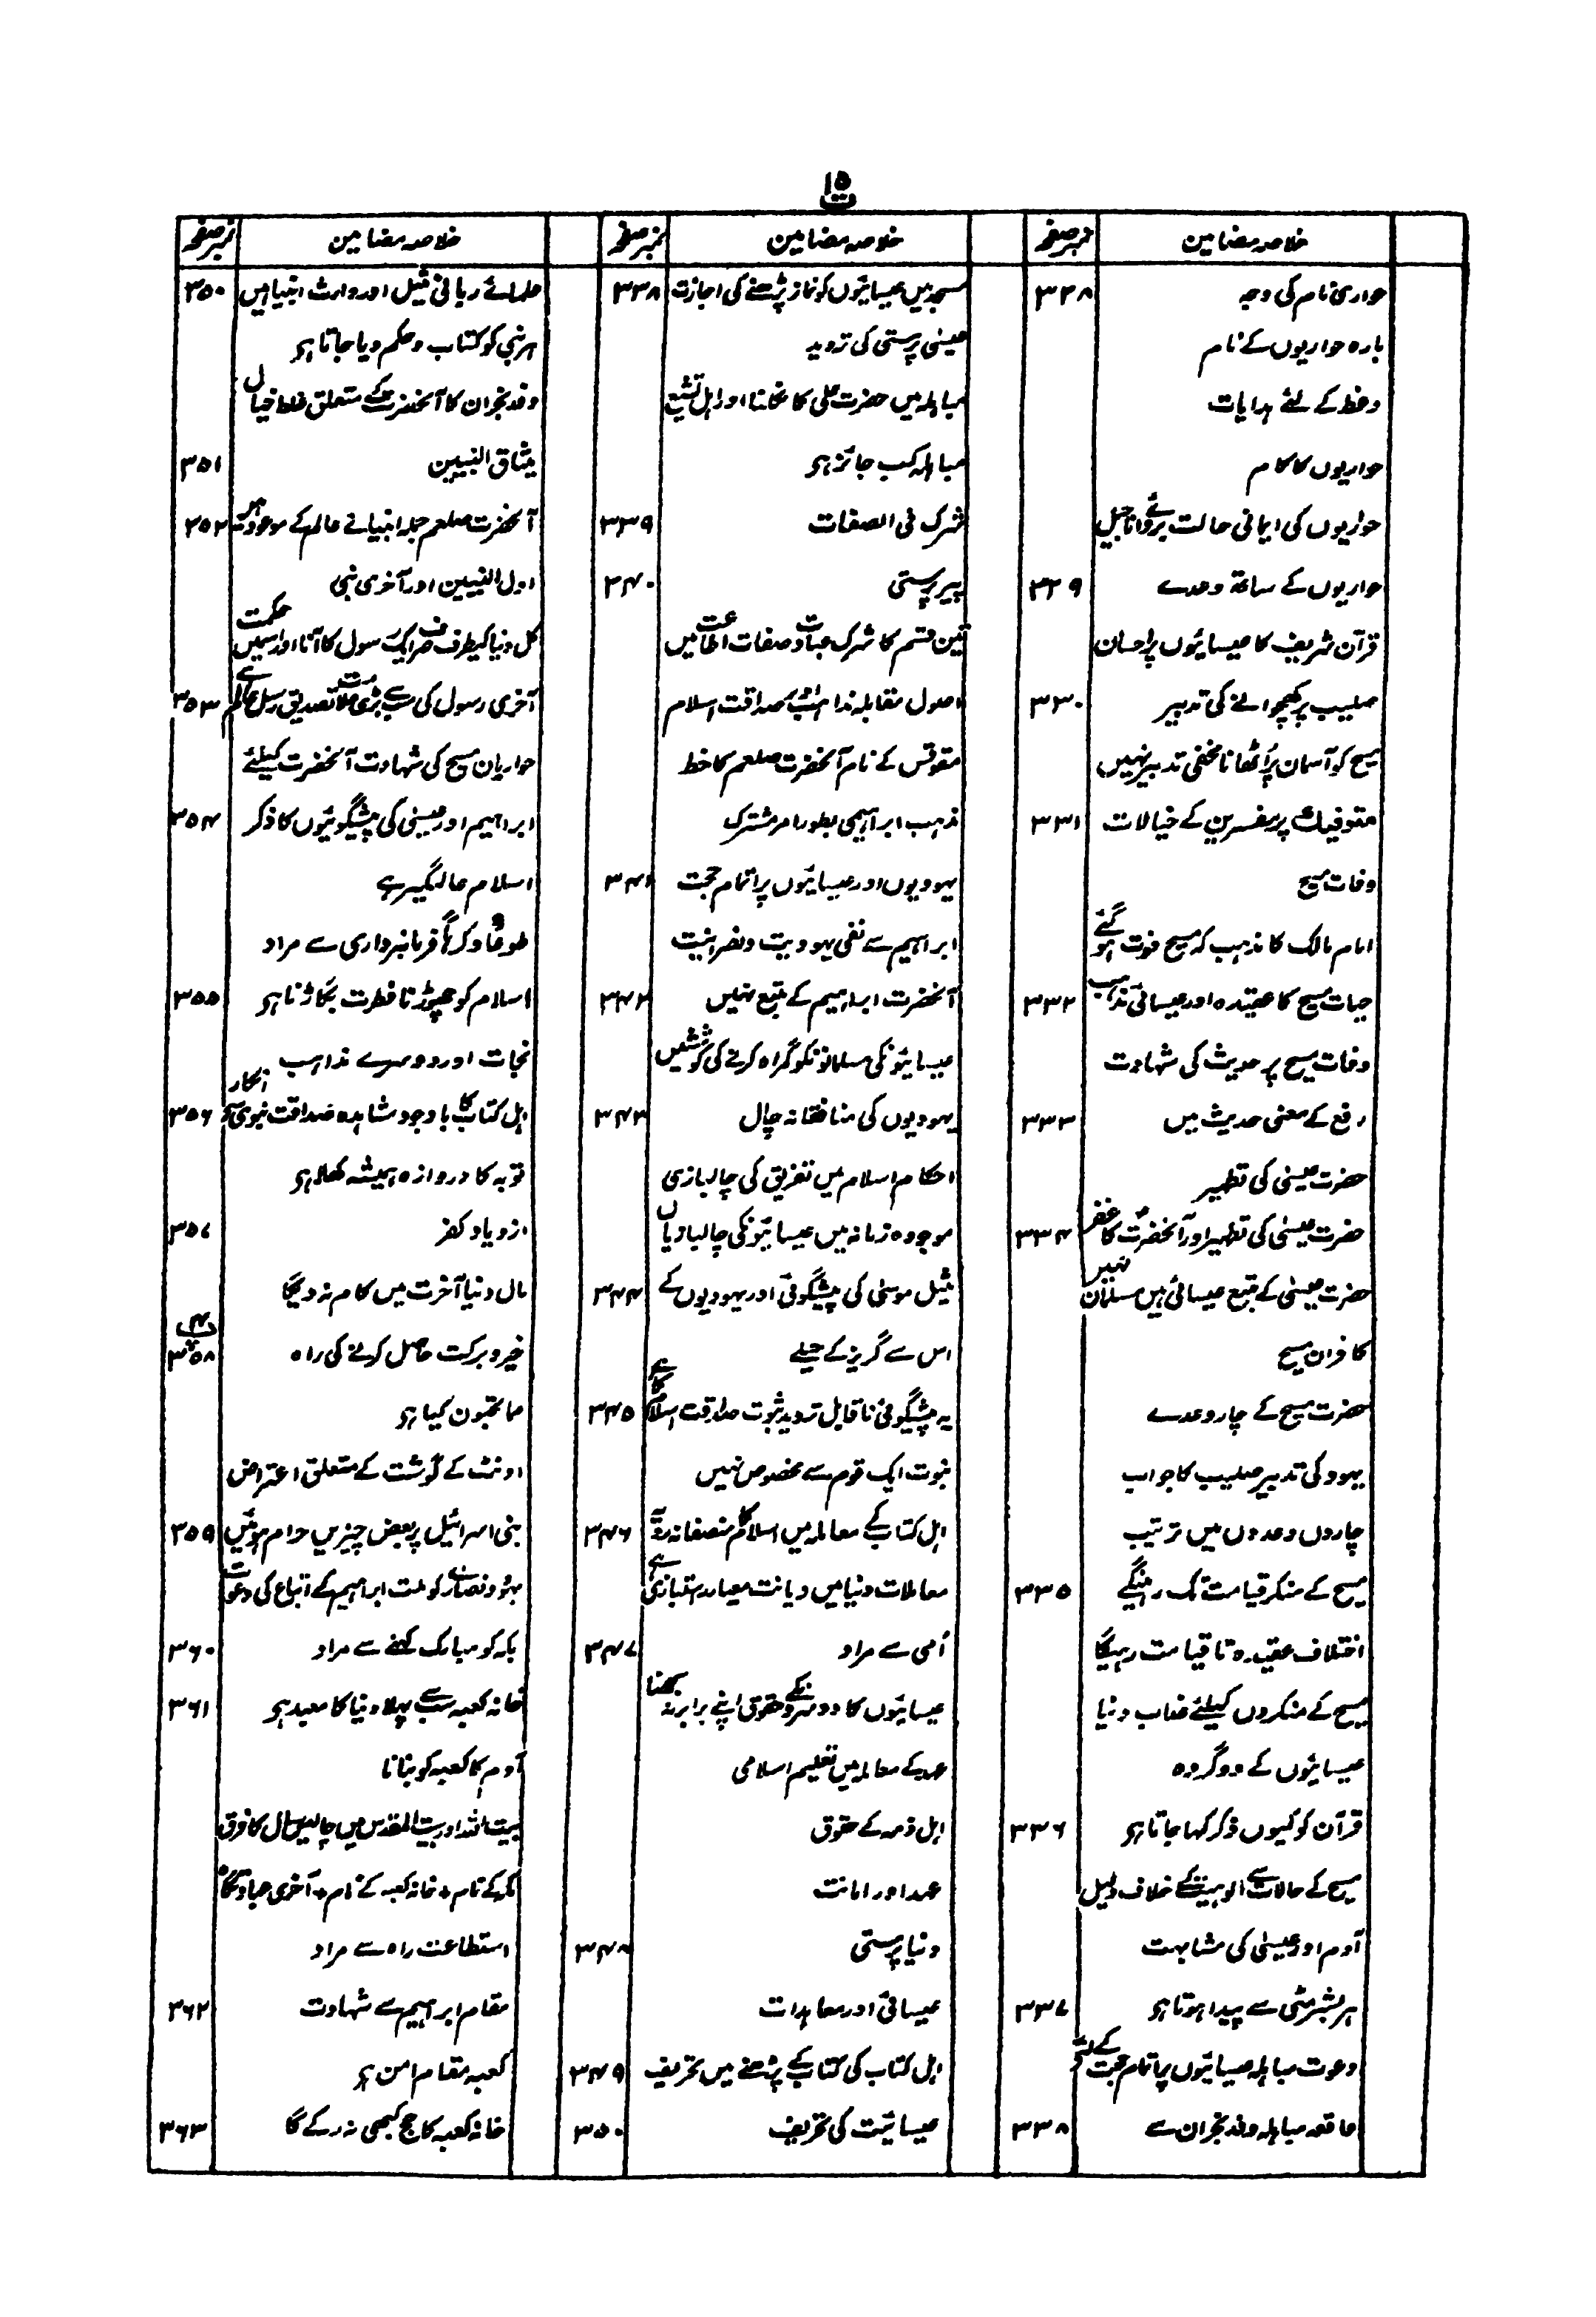 ۱۵
ت
خلاصہ مضامین نمبر صفحہ
حواری نام کی وجہ ۳۲۸
بارہ حواریوں کے نام
وعظ کے لئے ہدایات
حواریوں کا کام
حواریوں کی ایمانی حالت بروئے اناجیل
حواریوں کے ساتھ وعدے ۳۲۹
قرآن شریف کا عیسائیوں پر احسان
صلیب پر کھچوانے کی تدبیر ۳۳۰
مسیح کو آسمان پر اٹھانا مخفی تدبیر نہیں
متوفیک پر مفسرین کے خیالات ۳۳۱
وفات مسیح
امام مالک کا مذہب کہ مسیح فوت ہو گئے
حیات مسیح کا عقیدہ اور عیسائی مذہب ۳۳۲
وفات مسیح پر حدیث کی شہادت
رفع کے معنی حدیث میں ۳۳۳
حضرت عیسیٰ کی تطہیر
حضرت عیسیٰ کی تطہیر اور آنحضرت کا ۳۳۴
حضرت عیسیٰ کے متبع عیسائی ہیں مسلمان نہیں
کافران مسیح
حضرت مسیح کے چار وعدے
یہود کی تدبیر صلیب کا جواب
چاروں وعدوں میں ترتیب
مسیح کے منکر قیامت تک رہینگے ۳۳۵
اختلاف عقیدہ تا قیامت رہیگا
مسیح کے منکروں کیلئے عذاب دنیا
عیسائیوں کے دو گروہ
قرآن کو کیوں ذکر کہا جاتا ہو ۳۳۶
مسیح کے حالات سے الوہیت کے خلاف دلیل
آدم اور عیسیٰ کی مشابہت
ہر بشر مٹی سے پیدا ہوتا ہو ۳۳۷
دعوت مباہلہ عیسائیوں پر اتمام حجت کے لئے
واقعہ مباہلہ وفد نجران سے ۳۳۸
خلاصہ مضامین نمبر صفحہ
مسجد میں عیسائیوں کو نماز پڑھنے کی اجازت ۳۳۸
عیسیٰ پرستی کی تردید
مباہلہ میں حضرت علی کا نکلنا اور اہل تشیع
مباہلہ کب جائز ہو
شرک فی الصفات ۳۳۹
پیر پرستی ۳۴۰
تین قسم کا شرک عبادت وصفات اطاعت میں
اصول مقابلہ مذاہب صداقت اسلام
مقوقس کے نام آنحضرت صلعم کا خط
مذہب ابراہیمی بطور امر مشترک
یہودیوں اور عیسائیوں پر اتمام حجت ۳۴۱
ابراہیم سے نفی یہودیت ونصرانیت
آنحضرت ابراہیم کے متبع نہیں ۳۴۲
عیسائیونکی مسلمانونکو گمراہ کرنے کی کوششیں
یہودیوں کی منافقانہ چال ۳۴۳
احکام اسلام میں تفریق کی چالبازی
موجودہ زمانہ میں عیسائیونکی چالبازیاں
مثیل موسیٰ کی پیشگوئی اور یہودیوں کے ۳۴۴
اس سے گریز کے حیلے
یہ پیشگوئی ناقابل تردید ثبوت صداقت اسلام کا ہے ۳۴۵
نبوت ایک قوم سے مخصوص نہیں
اہل کتاب کے معاملہ میں اسلام کا منصفانہ رویہ ۳۴۶
معاملات دنیا میں دیانت معیار راستبازی ہے
اُمی سے مراد ۳۴۷
عیسائیوں کا دوسرونکے حقوق اپنے برابر نہ سمجھنا
عہد کے معاملہ میں تعلیم اسلامی
اہل ذمہ کے حقوق
عہد اور امانت
دنیا پرستی ۳۴۸
عیسائی اور معاہدات
اہل کتاب کی کتاب کے پڑھنے میں تحریف ۳۴۹
عیسائیت کی تحریف ۳۵۰
خلاصہ مضامین نمبر صفحہ
علمائے ربانی مثیل اور وارث انبیا ہیں ۳۵۰
ہر نبی کو کتاب و حکم دیا جاتا ہو
وفد نجران کا آنحضرت کے متعلق غلط خیال
میثاق النبیین ۳۵۱
آنحضرت صلعم جملہ انبیائے عالم کے موعود ہیں ۳۵۲
اول النبیین اور آخری نبی
کل دنیا کیطرف صرف ایک رسول کا آنا اور اسمیں حکمت
آخری رسول کی سب سے بڑی علامت تصدیق رسل عالم ہے ۳۵۳
حواریان مسیح کی شہادت آنحضرت کیلئے
ابراہیم اور عیسیٰ کی پیشگوئیوں کا ذکر ۳۵۴
اسلام عالمگیر ہے
طوعًا وکرہًا فرمانبرداری سے مراد
اسلام کو چھوڑنا فطرت بگاڑنا ہو ۳۵۵
نجات اور دوسرے مذاہب
اہل کتاب کا باوجود مشاہدہ صداقت نبوی کے انکار ۳۵۶
توبہ کا دروازہ ہمیشہ کھلا ہو
ازدیاد کفر ۳۵۷
مال دنیا آخرت میں کام نہ دیگا
خیر و برکت حاصل کرنے کی راہ ۳۵۸
مما تحبون کیا ہو
اونٹ کے گوشت کے متعلق اعتراض
بنی اسرائیل پر بعض چیزیں حرام ہوئیں ۳۵۹
یہود ونصاریٰ کو ملت ابراہیم کے اتباع کی دعوت
بکہ کو مبارک کہنے سے مراد ۳۶۰
خانہ کعبہ سب سے پہلا دنیا کا معبد ہو ۳۶۱
آدم کا کعبہ کو بنانا
بیت اللہ اور بیت المقدس میں چالیس سال کا فرق
مکہ کے نام + خانہ کعبہ کے نام + آخری عبادتگاہ
استطاعت راہ سے مراد
مقام ابراہیم سے شہادت ۳۶۲
کعبہ مقام امن ہو
خانہ کعبہ کا حج کبھی نہ رکے گا ۳۶۳